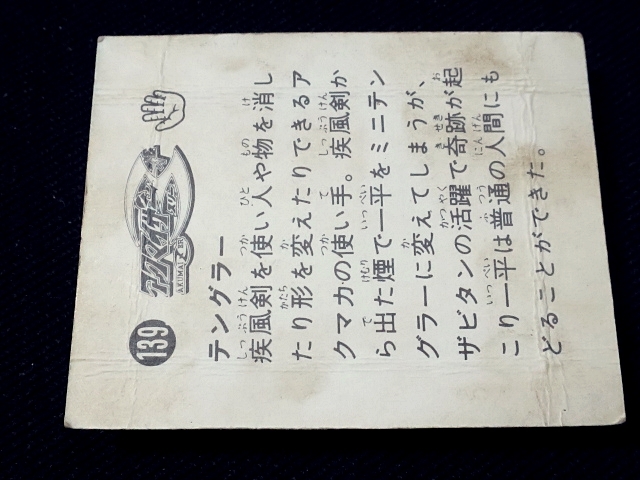 139
アクマイザー
スリー
AKUMAIZER
テングラー
疾風剣を使い人や物を消し
たり形を変えたりできるア
クマカの使い手。疾風剣か
ら出た煙で一平をミニテン
グラーに変えてしまうが、
ザビタンの活躍で奇跡が起
こり一平は普通の人間にも
どることができた。